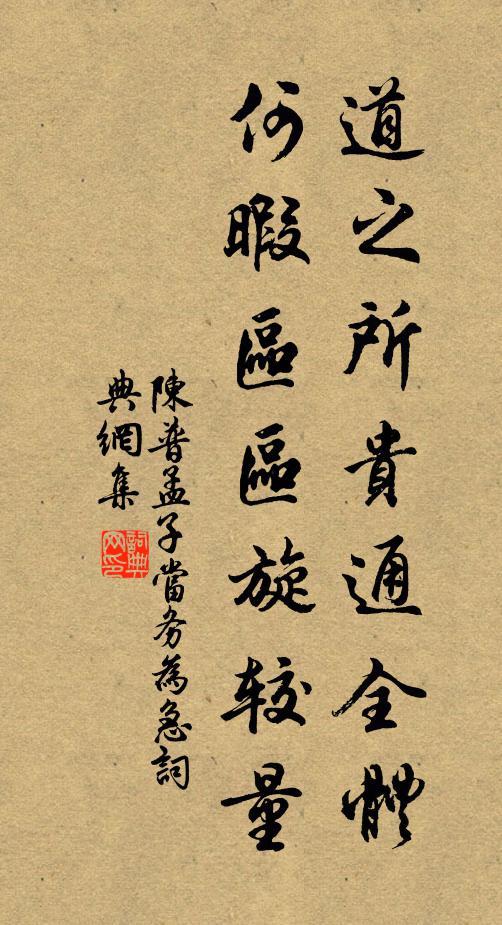 道之所貴通全體
何暇區區旋较量
陳普孟子當务為急詞
典網集
詞典网印